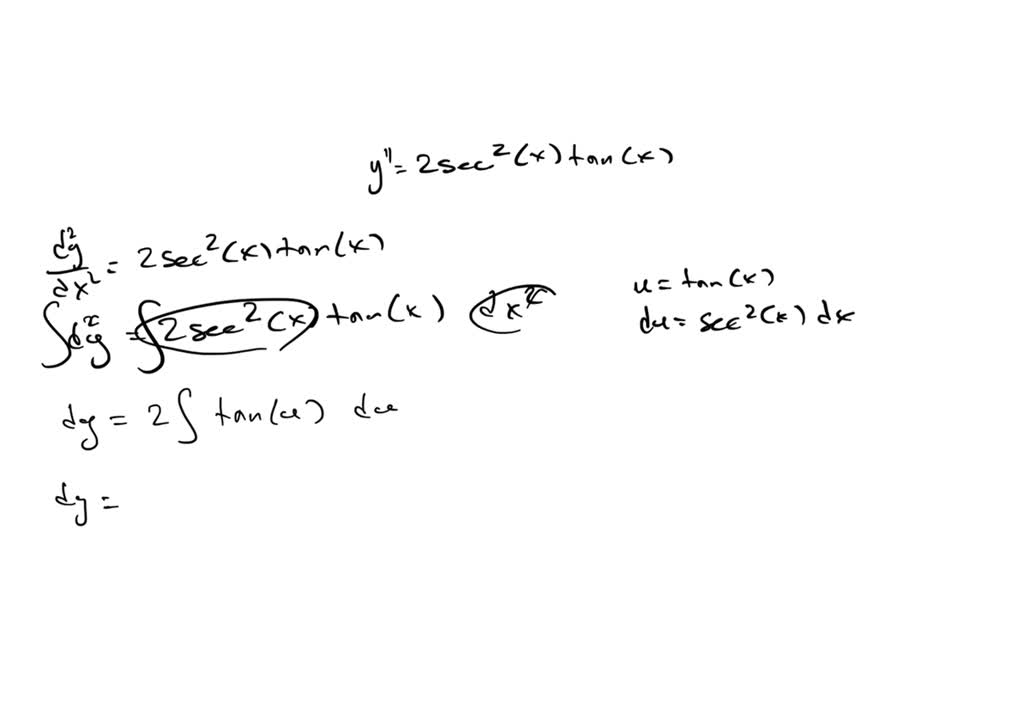 y'' = 2sec²(x)tan(x)
d²y/dx² = 2sec²(x)tan(x)
∫d²y = ∫2sec²(x)tan(x) dx²
u = tan(x)
du = sec²(x) dx
dy = 2∫tan(u) du
dy =